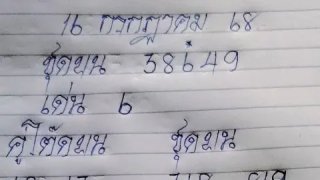 16 กรกฎาคม 68
ชุดบน 38649
เด่น 6
คู่โต๊ดบน ชุดบน